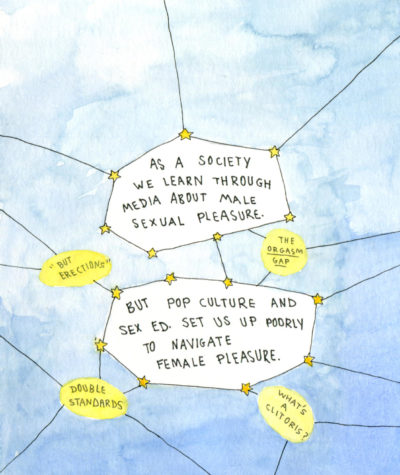 AS A SOCIETY
WE LEARN THROUGH
MEDIA ABOUT MALE
SEXUAL PLEASURE.
THE
ORGASM
GAP
"BUT
ERECTIONS"
BUT POP CULTURE AND
SEX ED. SET US UP POORLY
TO NAVIGATE
FEMALE PLEASURE.
DOUBLE
STANDARDS
WHAT'S
A
CLITORIS?